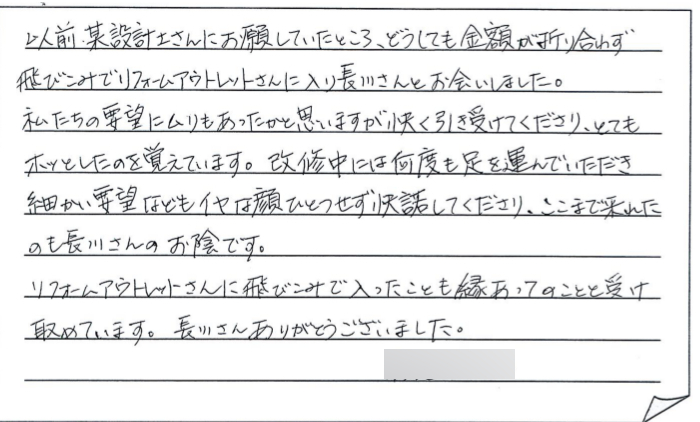 以前、某設計士さんにお願いしていたところ、どうしても金額が折り合わず
飛びこみでリフォームアウトレットさんに入り長川さんとお会いしました。
私たちの要望にムリもあったかと思いますが快く引き受けてくださり、とても
ホッとしたのを覚えています。改修中には何度も足を運んでいただき
細かい要望などもイヤな顔ひとつせず快諾してくださり、ここまで来れた
のも長川さんのお陰です。
リフォームアウトレットさんに飛びこみで入ったことも縁あってのことと受け
取めています。長川さんありがとうございました。